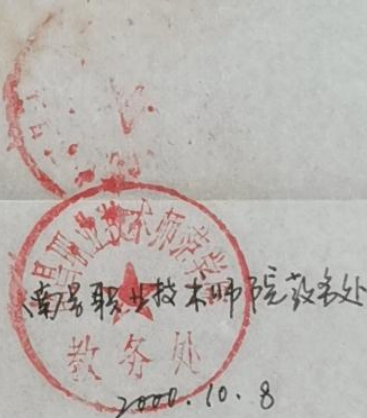 南昌职业技术师范学院
教务处
南昌职业技术师院教务处
2000.10.8